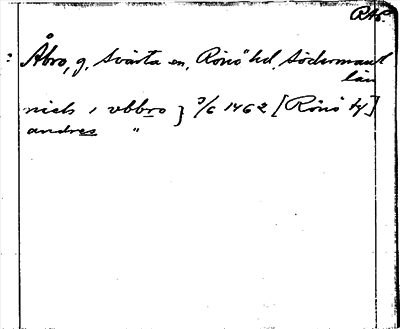 RAp.
Åbro, g, Svärta sn, Rönö hd, Södermanl
län
niels i obbro } 3/6 1462 [Rönö hj]
andres "